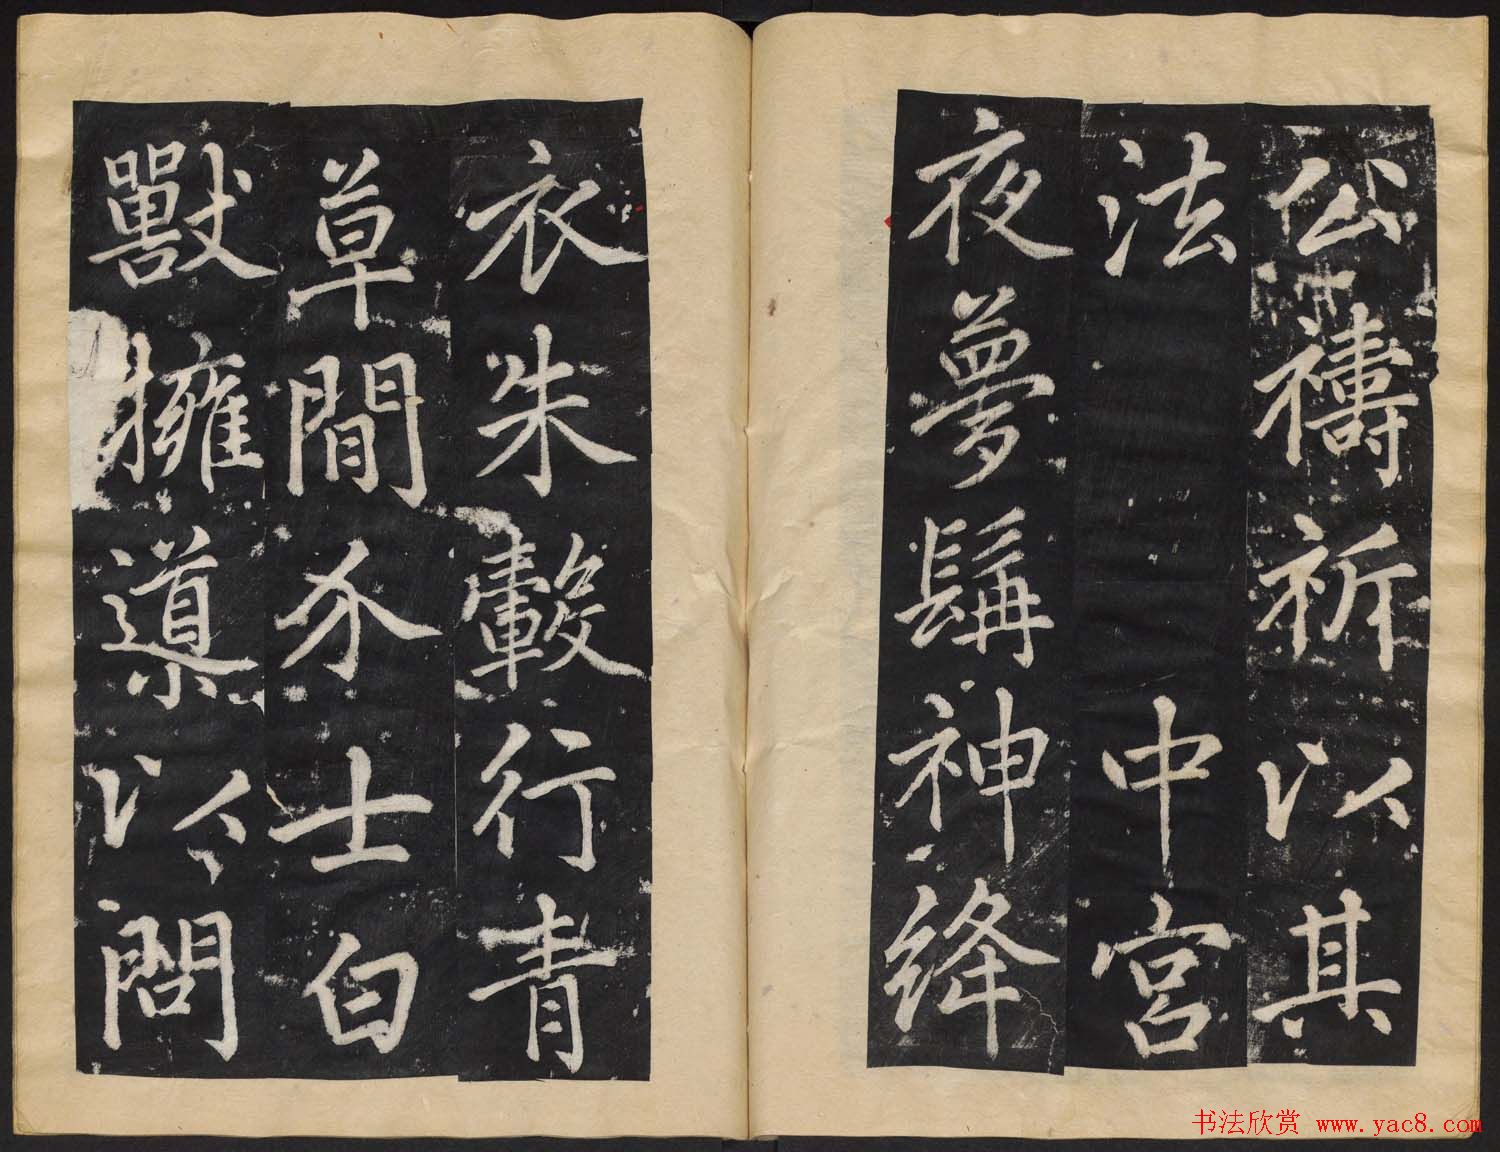 公禱祈以其
法　中宮
夜夢髯神絳
衣朱轂行青
草間介士白
獸擁導以問
书法欣赏 www.yac8.com